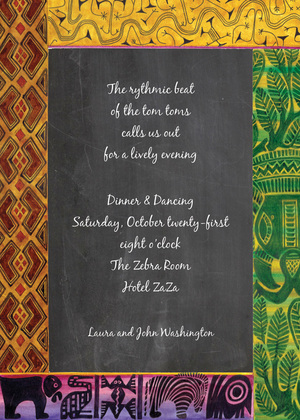 The rythmic beat
of the tom toms
calls us out
for a lively evening
Dinner & Dancing
Saturday, October twenty-first
eight o'clock
The Zebra Room
Hotel ZaZa
Laura and John Washington